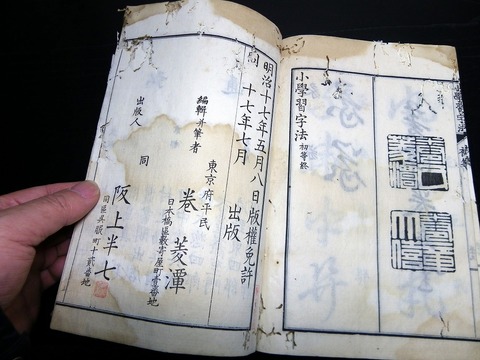 小學習字法 初等終
明治十七年五月八日版權免許
同 十七年七月 出版
編輯并筆者 東京府平民
卷菱潭
日本橋區數寄屋町壹番地
出版人 同
阪上半七
同區呉服町十貳番地